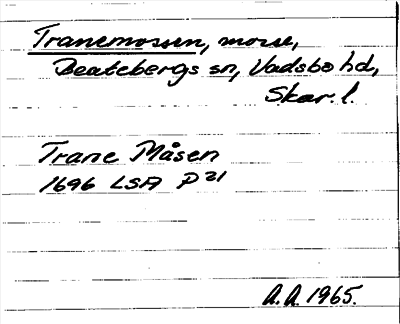 Tranemossen, mosse,
Beatebergs sn, Vadsbo hd,
Skar. l.
Trane Måsen
1696 LSA P21
A.A. 1965.